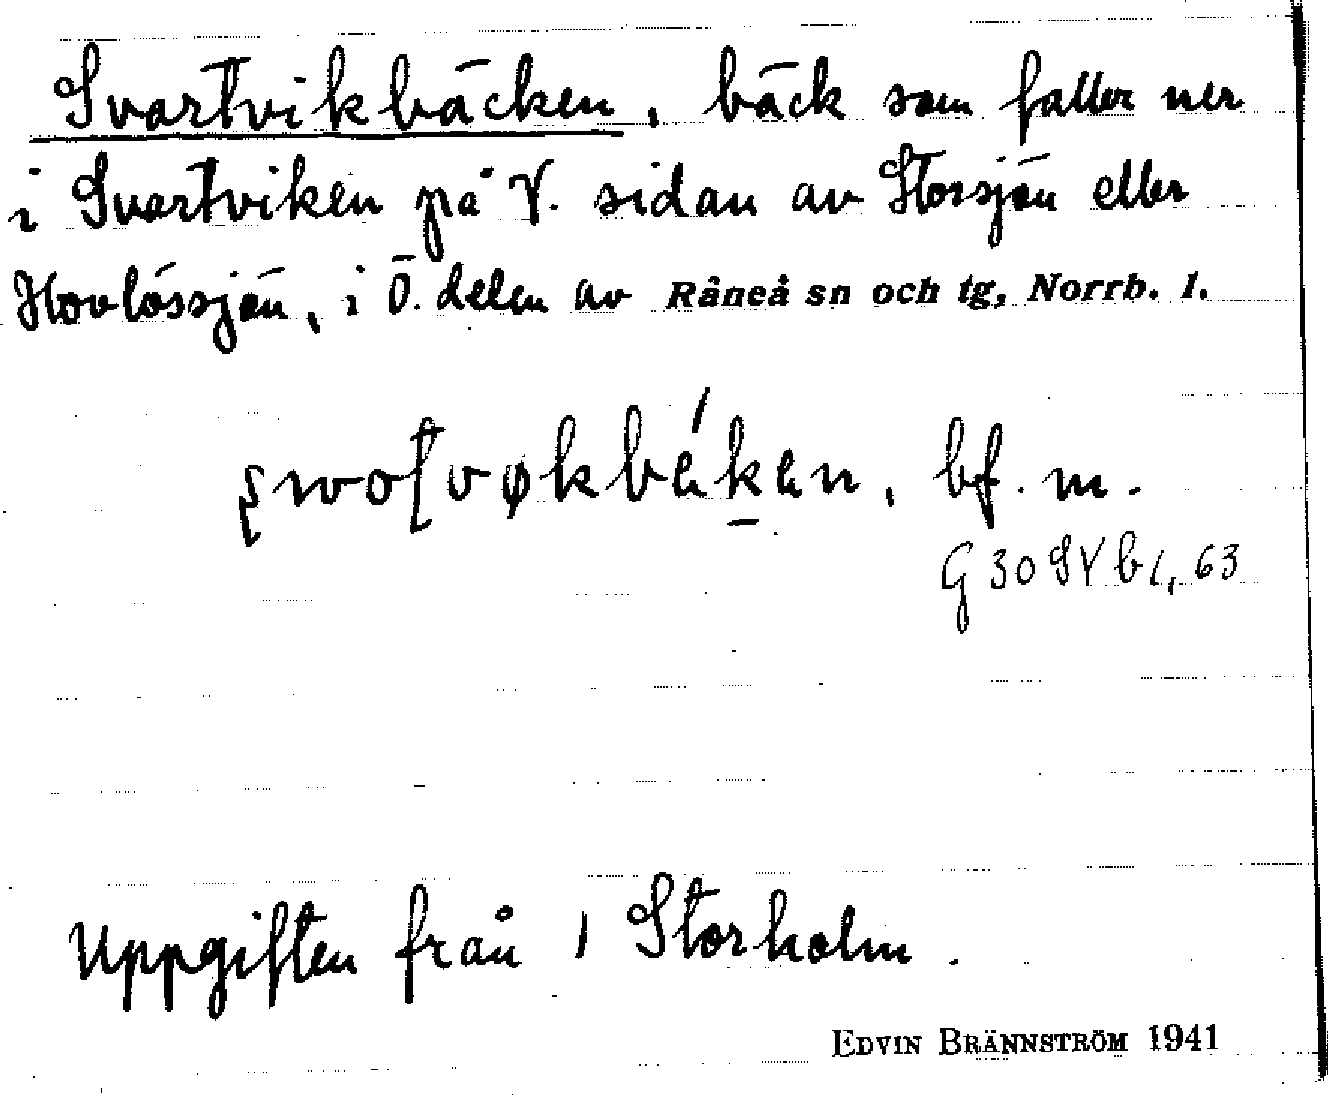 Svartvikbäcken, bäck som faller ner
i Svartviken på V. sidan av Storsjön eller
Hovlössjön, i Ö. delen av Råneå sn och tg, Norrb. l.
bf. m.
G 30 SV b 1, 63
Uppgiften från 1 Storholm.
EDVIN BRÄNNSTRÖM 1941